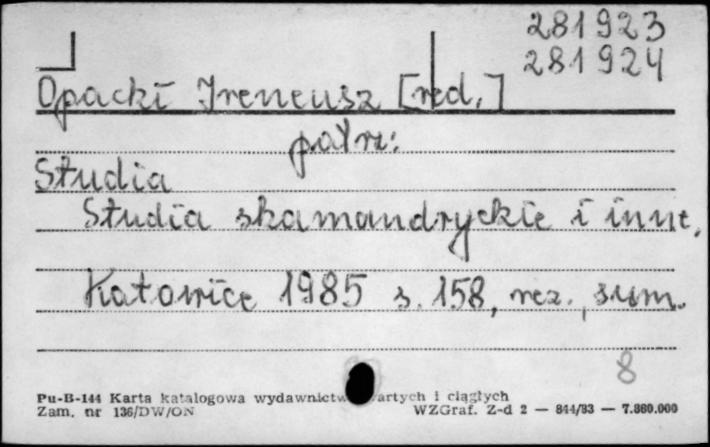 281923
281924
Opacki Ireneusz [red.]
patrz:
Studia
Studia skamandryckie i inne,
Katowice 1985 s. 158, rez., sum.
8
Pu-B-144 Karta katalogowa wydawnictw i ciągłych
Zam. nr 136/DW/ON WZGraf. Z-d 2 — 844/83 — 7.860.000